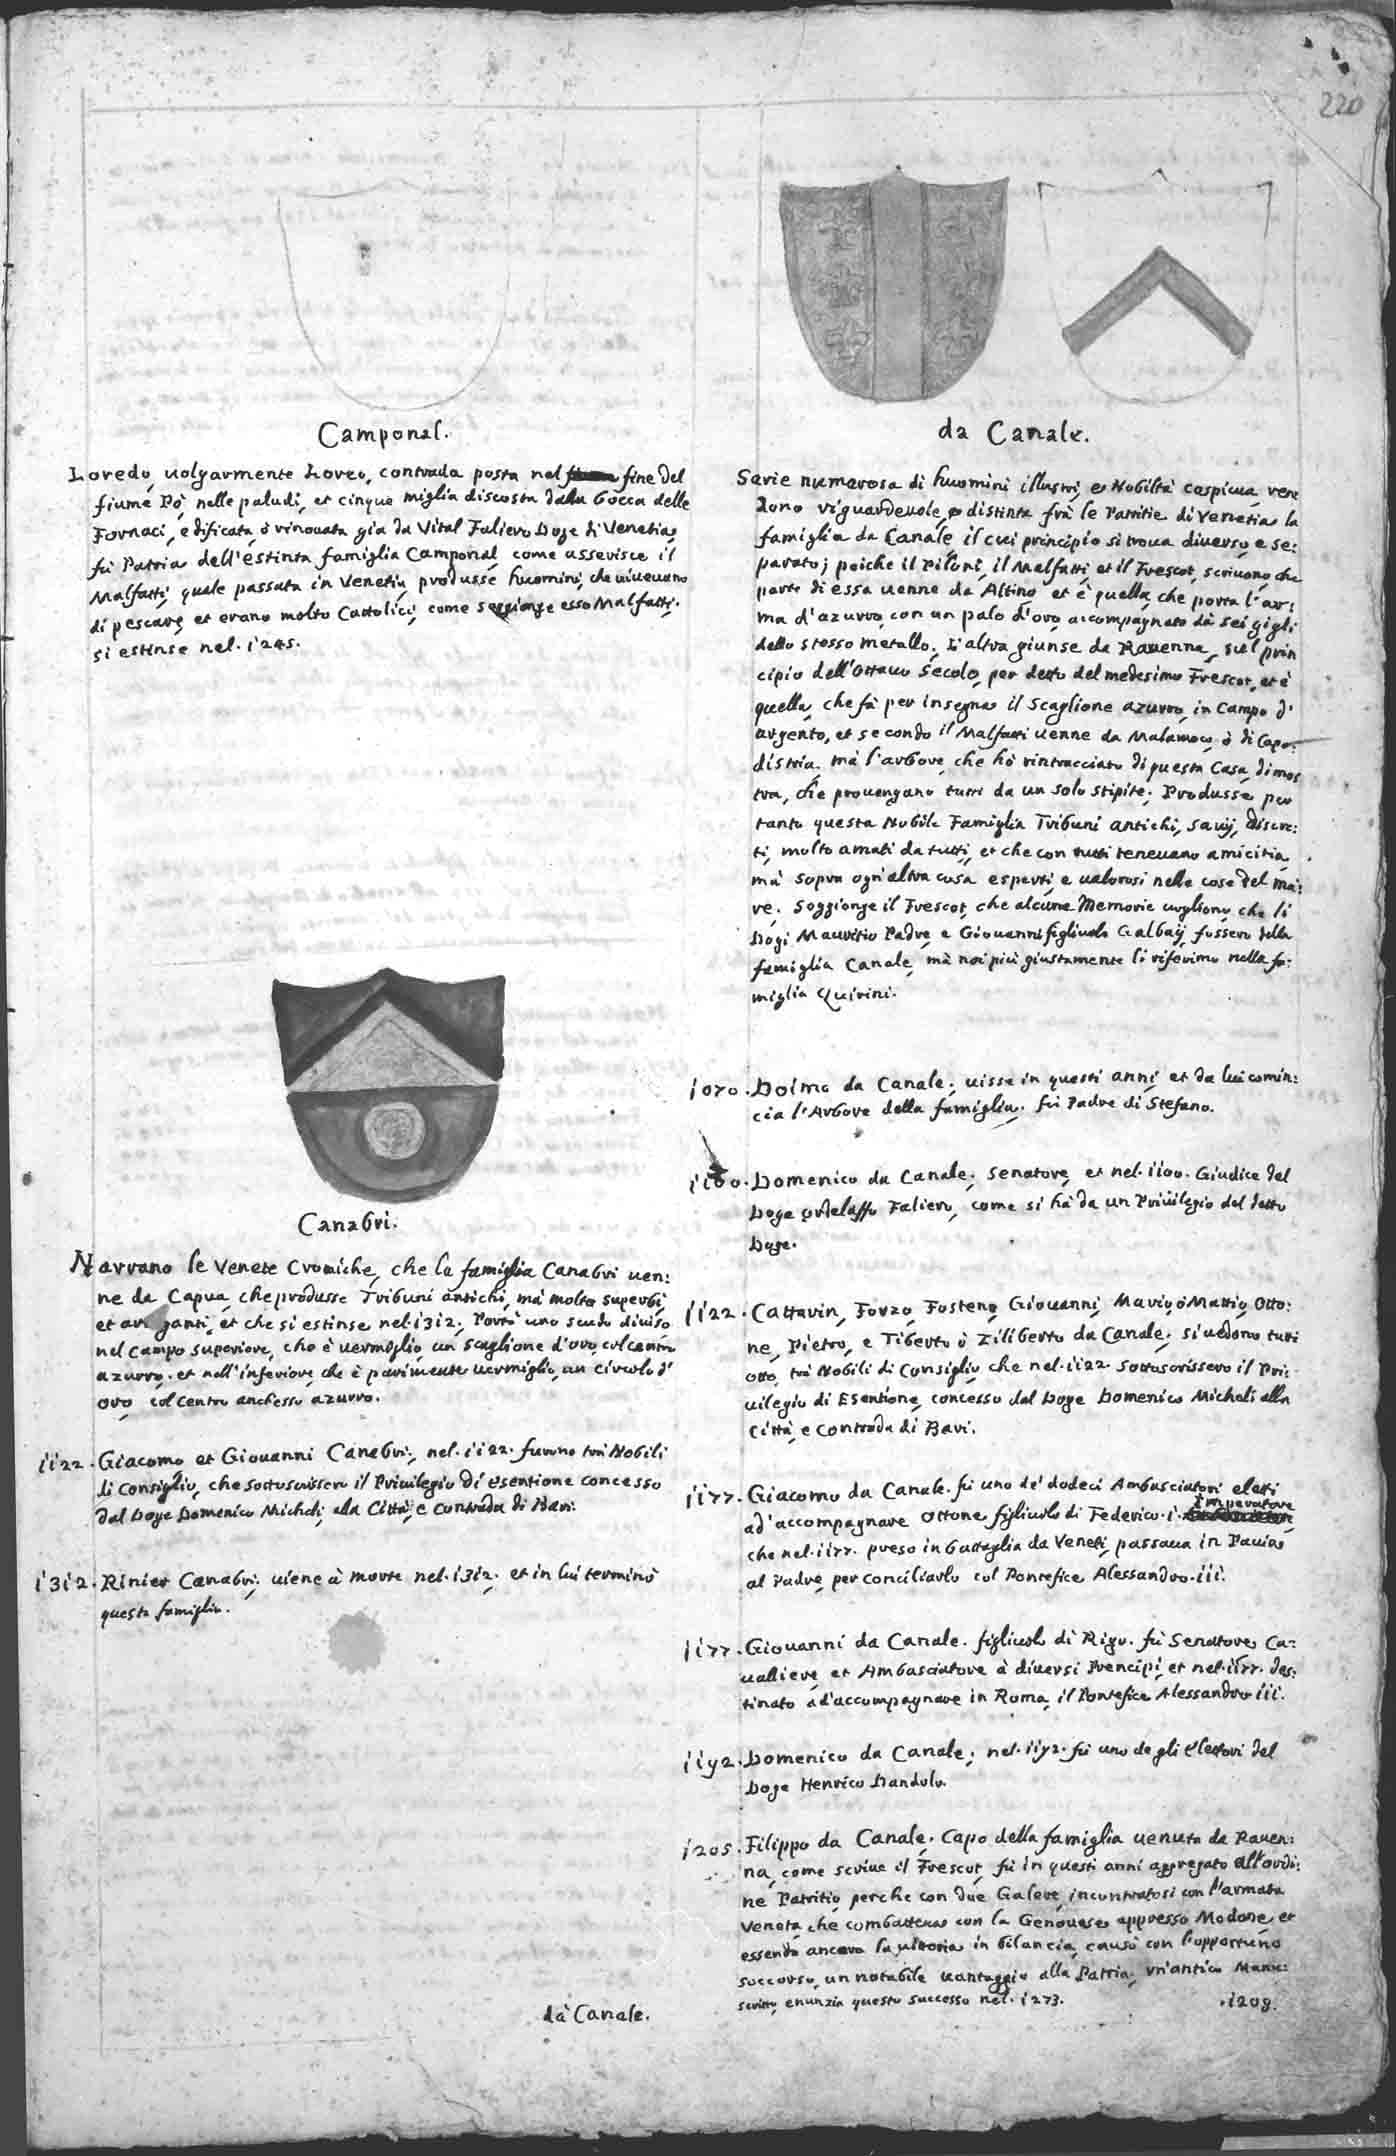 220
Camponal.
Loredo, uolgarmente Loreo, contrada posta nel fine del
fiume Pò, nelle paludi, et cinque miglia discosta dalla bocca delle
Fornaci, edificata, ò rinouata gia da Vital Falier Doge di Venetia,
fù Patria dell'estinta famiglia Camponal, come asserisce il
Malfatti, quale passata in Venetia, produsse huomini, che uiueuano
di pescare, et erano molto Cattolici, come soggionge esso Malfatti.
si estinse nel. 1245.
Canabri.
Narrano le Venete Croniche, che la famiglia Canabri uen:
ne da Capua, che produsse Tribuni antichi, mà molto superbi,
et arroganti, et che si estinse nel. 1312. Portò uno scudo diuiso
nel campo superiore, che è uermiglio un scaglione d'oro, col centro
azurro. et nell'inferiore, che è parimente uermiglio, un circolo d'
oro, col centro anch'esso azurro.
1122. Giacomo et Giouanni Canabri; nel. 1122. furono trà Nobili
di Consiglio, che sottoscrissero il Priuilegio di esentione concesso
dal Doge Domenico Micheli, alla Città, e Contrada di Bari.
1312. Rinier Canabri; uiene à morte nel. 1312. et in lui terminò
questa famiglia.
dà Canale.
da Canale.
Serie numerosa di huomini illustri, e Nobiltà cospicua, ren
dono riguardeuole, e distinta frà le Patritie di Venetia, la
famiglia da Canale, il cui principio si troua diuerso, e se:
parato; poiche il Piloni, il Malfatti, et il Frescot, scriuono, che
parte di essa uenne da Altino et è quella, che porta l'ar:
ma d'azurro, con un palo d'oro, accompagnato dà sei gigli
dello stesso metallo. L'altra giunse da Rauenna, sul prin
cipio dell'Ottauo Secolo, per detto del medesimo Frescot, et è
quella, che fà per insegna il Scaglione azurro, in Campo d'
argento, et secondo il Malfatti uenne da Malamoco, ò di Capo:
distria. mà l'arbore, che hò rintracciato di questa Casa, dimos
tra, che prouengano tutti da un solo stipite. Produsse per
tanto questa Nobile Famiglia Tribuni antichi, sauij, discre:
ti, molto amati da tutti, et che con tutti teneuano amicitia,
mà sopra ogn'altra cosa esperti, e ualorosi nelle cose del ma:
re. Soggionge il Frescot, che alcune Memorie uogliono, che li
Dogi Mauritio Padre, e Giouanni figliuolo Galbaij, fossero della
famiglia Canale, mà noi più giustamente li riferimo nella fa:
miglia Quirini.
1070. Doimo da Canale; uisse in questi anni, et da lui comin:
cia l'Arbore della famiglia. fù Padre di Stefano.
1100. Domenico da Canale; Senatore, et nel. 1100. Giudice del
Doge Ordelaffo Faliero, come si hà da un Priuilegio del detto
Doge.
1122. Cattarin, Forzo, Fosteno, Giouanni, Mario, ò Mattio, Otto:
ne, Pietro, e Tiberto ò Ziliberto da Canale; si uedono tutti
otto, trà Nobili di Consiglio, che nel. 1122. sottoscrissero il Pri:
uilegio di Esentione, concesso dal Doge Domenico Micheli alla
Città, e Contrada di Bari.
1177. Giacomo da Canale. fù uno de' dodeci Ambasciatori eletti
ad'accompagnare Ottone figliuolo di Federico. i. Imperatore
che nel. 1177. preso in battaglia da Veneti, passaua in Pauia
al Padre, per conciliarlo col Pontefice Alessandro. iii.
1177. Giouanni da Canale. figliuolo di Rigo. fù Senatore, Ca:
ualliere, et Ambasciatore à diuersi Prencipi, et nel. 1177. des:
tinato ad'accompagnare in Roma, il Pontefice Alessandro iii.
1192. Domenico da Canale; nel. 1192. fù uno de gli Elettori del
Doge Henrico Dandolo.
1205. Filippo da Canale. Capo della famiglia uenuta da Rauen:
na, come scriue il Frescot, fù in questi anni aggregato all'ordi:
ne Patritio, perche con due Galere, incontratosi con l'armata
Veneta, che combatteua con la Genouese appresso Modone, et
essendo ancora la uittoria in bilancia, causò con l'opportuno
soccorso, un notabile uantaggio alla Patria. un'antico Manu:
scritto, enunzia questo successo nel. 1273.
.1208.